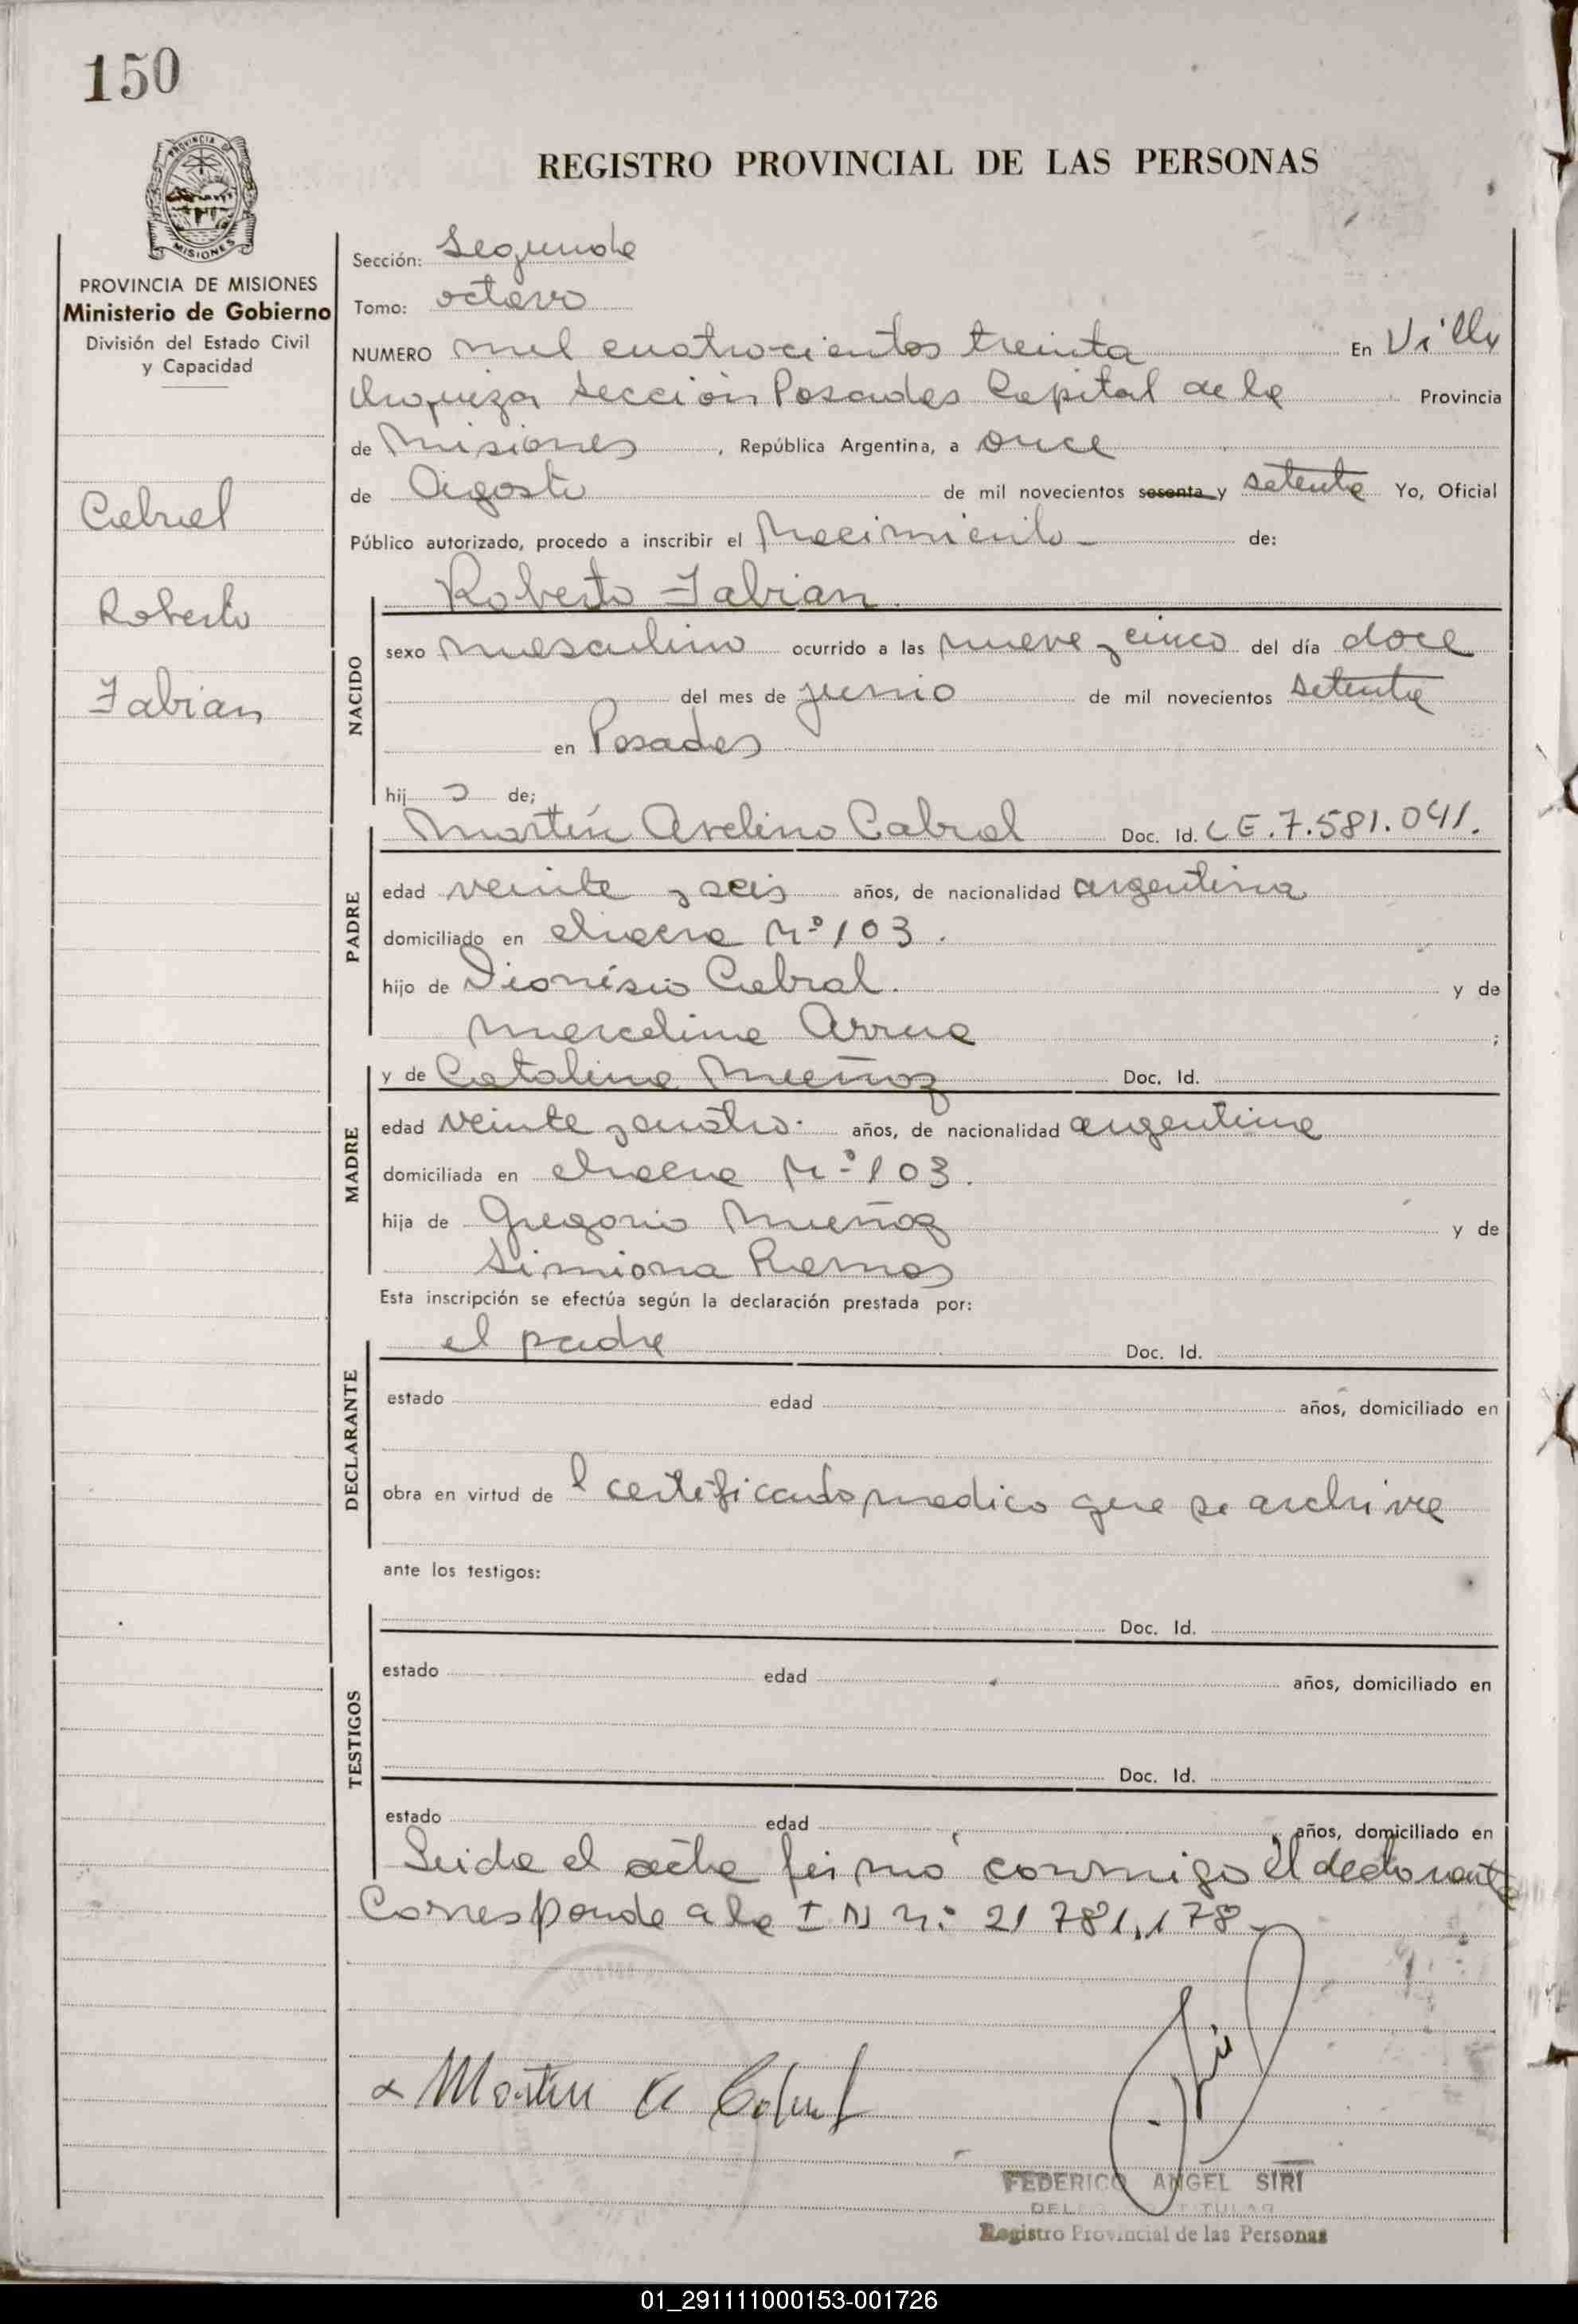 150
PROVINCIA DE
MISIONES
REGISTRO PROVINCIAL DE LAS PERSONAS
PROVINCIA DE MISIONES
Ministerio de Gobierno
División del Estado Civil
y Capacidad
Cabral
Roberto
Fabian
Sección: Segunda
Tomo: octavo
NUMERO mil cuatrocientos treinta En Villa
Urquiza Sección Posadas Capital de la Provincia
de Misiones, República Argentina, a once
de Agosto de mil novecientos sesenta y setenta Yo, Oficial
Público autorizado, procedo a inscribir el Nacimiento - de:
Roberto Fabian.
NACIDO
sexo masculino ocurrido a las nueve y cinco del día doce
del mes de junio de mil novecientos setenta
en Posadas
hij o de;
Martín Avelino Cabral Doc. Id. LE.7.581.041.
PADRE
edad veinte y seis años, de nacionalidad argentina
domiciliado en chacra Nº 103.
hijo de Dionisio Cabral. y de
Marcelina Arrua ;
y de Catalina Muñoz Doc. Id.
MADRE
edad veinte y cuatro. años, de nacionalidad argentina
domiciliada en chacra Nº 103.
hija de Gregorio Muñoz y de
Simiona Ramos
Esta inscripción se efectúa según la declaración prestada por:
el padre Doc. Id.
DECLARANTE
estado edad años, domiciliado en
obra en virtud de l certificado medico que se archiva
ante los testigos:
Doc. Id.
TESTIGOS
estado edad años, domiciliado en
Doc. Id.
estado edad años, domiciliado en
Leida el acta firmó conmigo el declarante
Corresponde a la I N n.º 21 781.178-
Martin A Cabral
FEDERICO ANGEL SIRI
TITULAR
Registro Provincial de las Personas
01_291111000153-001726